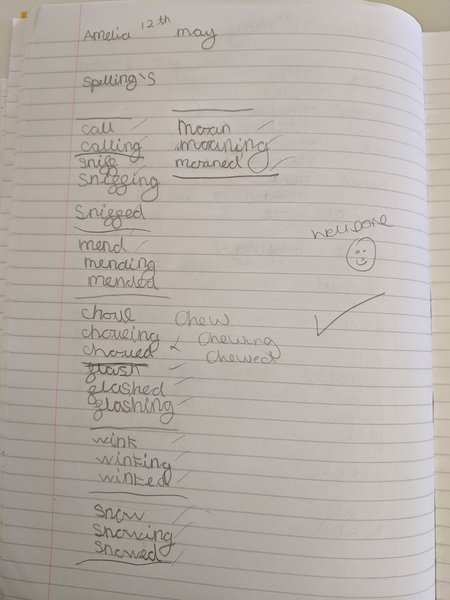 Amelia 12th may
Spelling's
call
calling
sniff
sniffing
sniffed
mend
mending
mended
choue
choueing
choued
flash
flashed
flashing
wink
winking
winked
snow
snowing
snowed
moan
moaning
moaned
Chew
Chewing
Chewed
Well DONE